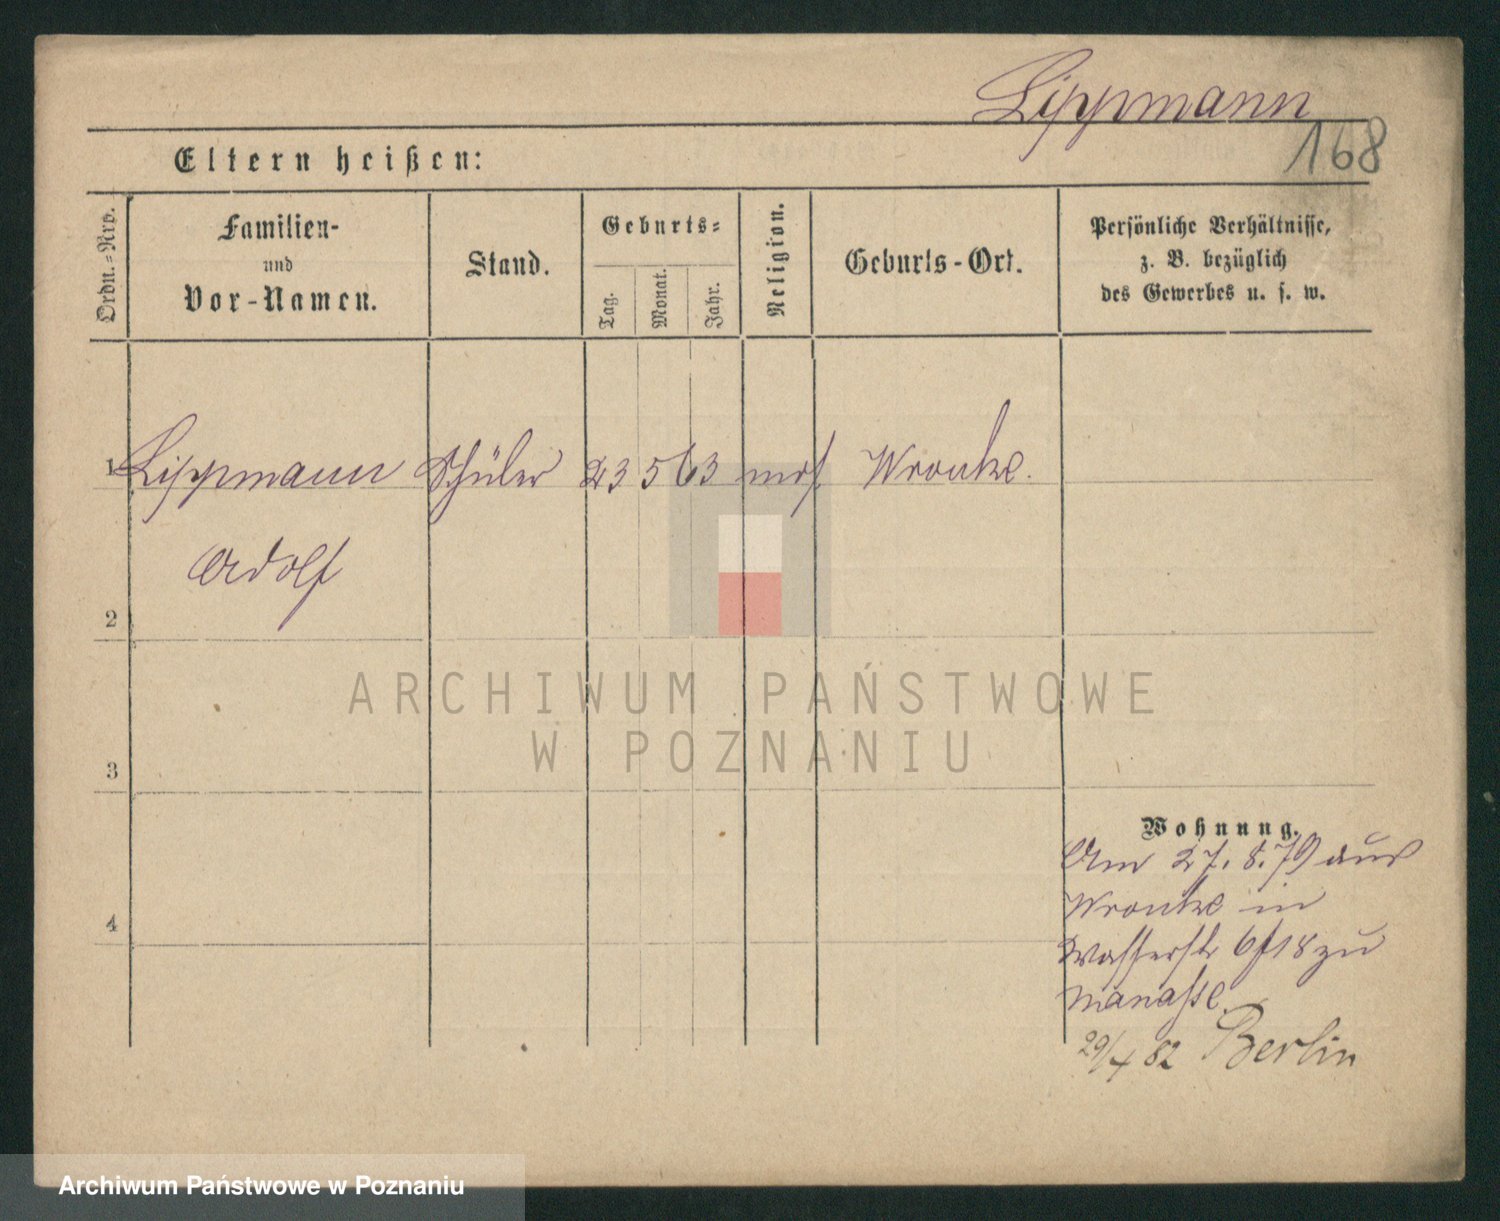 Lippmann
168
Eltern heißen:
Ordn.-Nro.
Familien-
und
Vor-Namen.
Stand.
Geburts-
Tag.
Monat.
Jahr.
Religion.
Geburts-Ort.
Persönliche Verhältnisse,
z. B. bezüglich
des Gewerbes u. s. w.
1 Lippmann Schüler 23 5 63 mos. Wronke.
Adolf
2
3
4
Wohnung.
Am 27. 8. 79 aus
Wronke in
Wasserstr 6/18 zu
Manasse.
29/4 82 Berlin
ARCHIWUM PAŃSTWOWE
W POZNANIU
Archiwum Państwowe w Poznaniu